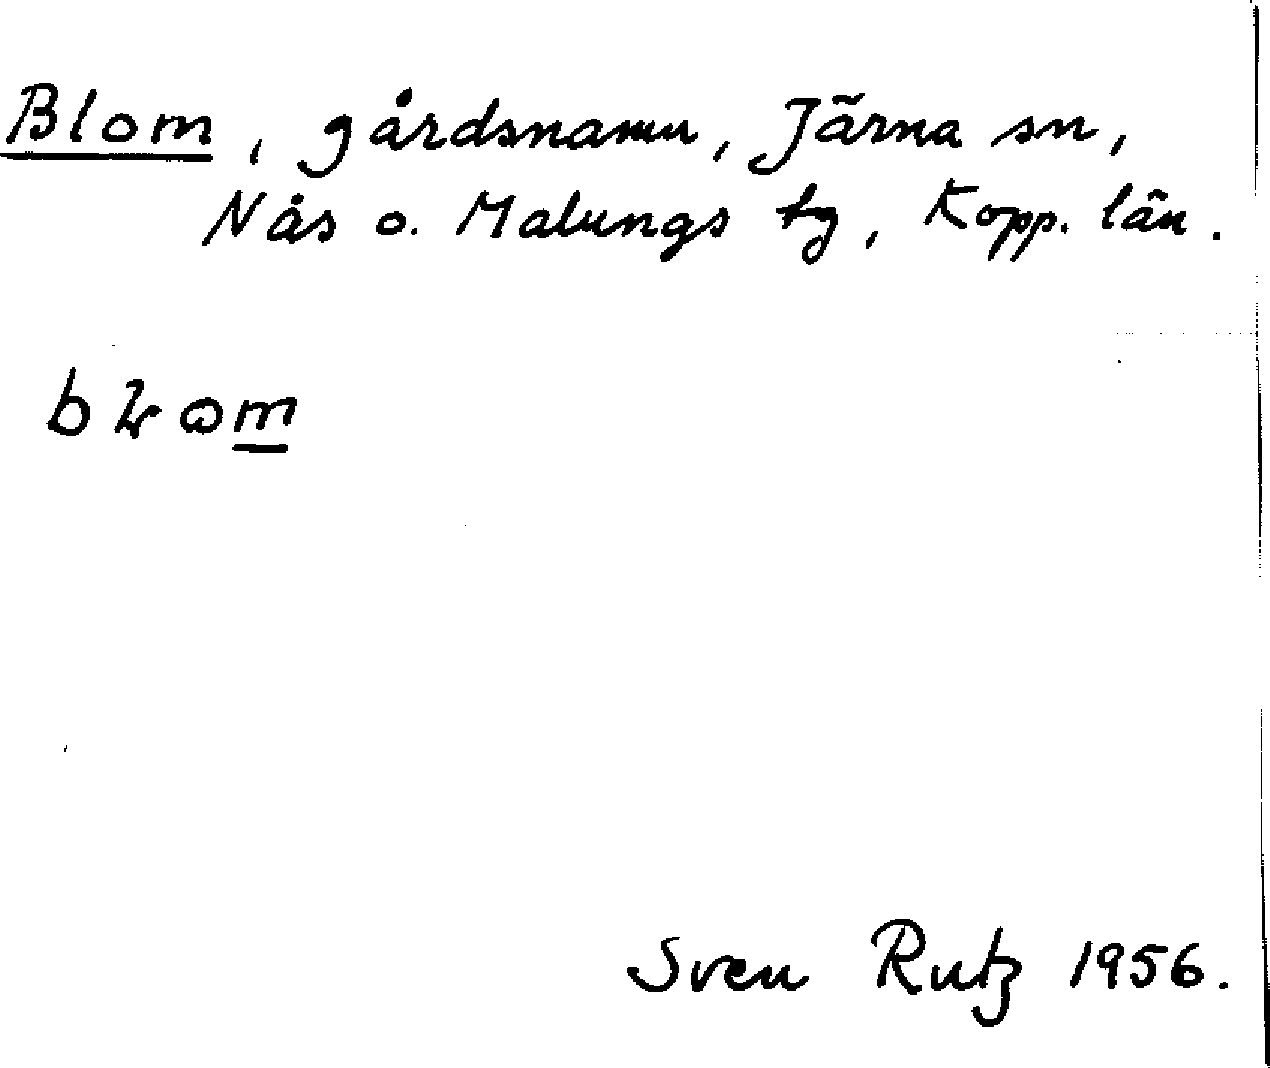 Blom, gårdsnamn, Järna sn,
Nås o. Malungs tg, Kopp. län.
Sven Rutz 1956.